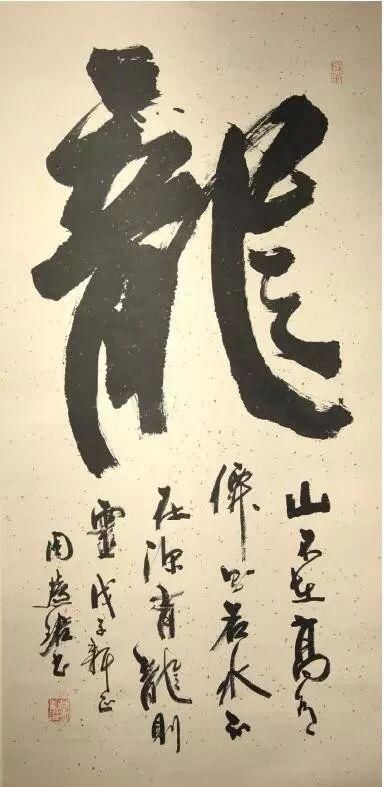 龍
山不在高有
僊則名水不
在深有龍則
靈 戊子新正
周慧珺书